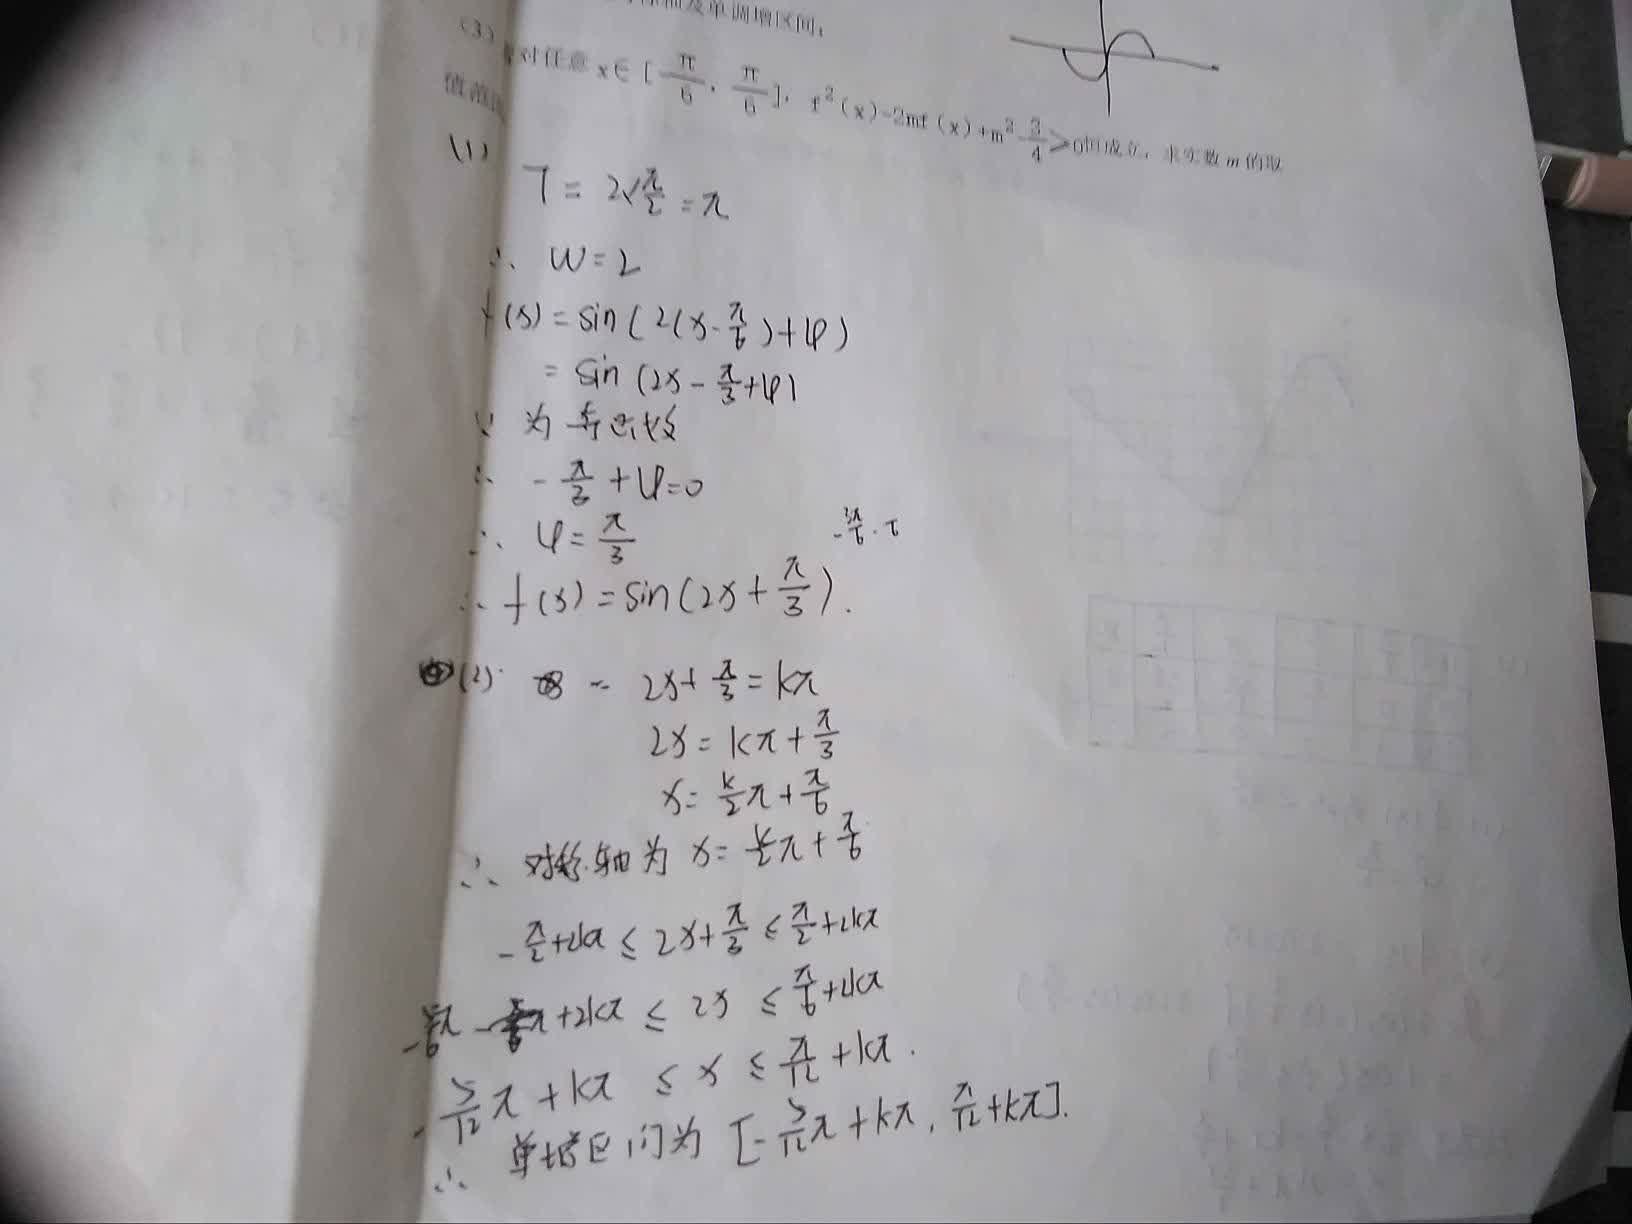 轴及单调增区间;
(3) 对任意 x∈[-π/6, π/6], f²(x)-2mf(x)+m²-3/4>0恒成立, 求实数m的取
值范围
(1)
T = 2×π/2 = π
∴ W=2
f(x) = sin(2(x-π/6)+φ)
= sin(2x-π/3+φ)
∵ 为奇函数
∴ -π/3+φ=0
∴ φ=π/3
∴ f(x)=sin(2x+π/3).
(2) 2x+π/3=kπ
2x=kπ+π/3
x=k/2π+π/6
∴ 对称轴为 x=k/2π+π/6
-π/2+2kπ ≤ 2x+π/3 ≤ π/2+2kπ
-5/6π+2kπ ≤ 2x ≤ π/6+2kπ
-5/12π+kπ ≤ x ≤ π/12+kπ.
∴ 单增区间为 [-5/12π+kπ, π/12+kπ].